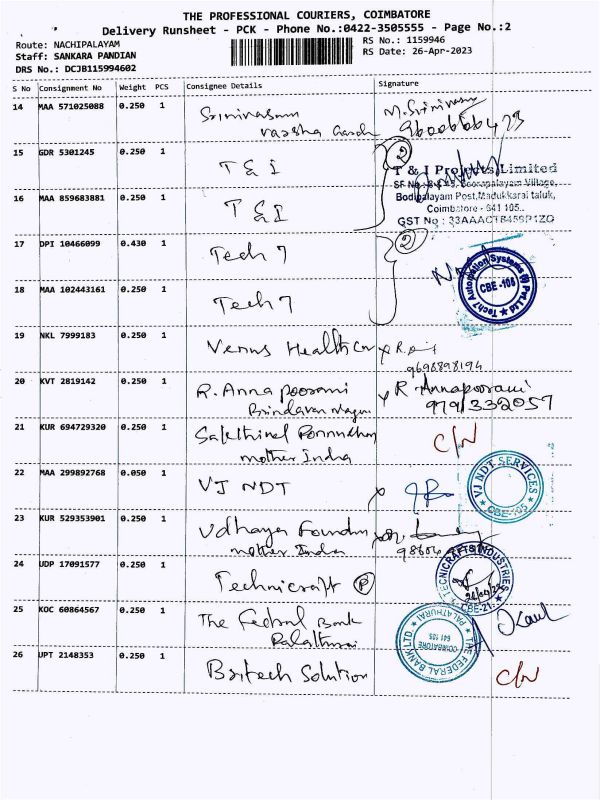 THE PROFESSIONAL COURIERS, COIMBATORE
Delivery Runsheet - PCK - Phone No.:0422-3505555 - Page No.:2
Route: NACHIPALAYAM RS No.: 1159946
Staff: SANKARA PANDIAN RS Date: 26-Apr-2023
DRS No.: DCJB115994602
S No Consignment No Weight PCS Consignee Details Signature
14 MAA 571025088 0.250 1 Srinivasan M. Srinivasan
15 GDR 5301245 0.250 1 T & I 2
T & I Projects Limited
Boorapalayam Village,
16 MAA 859683881 0.250 1 T & I
Bodipalayam Post, Madukkarai taluk,
Coimbatore - 641 105.
GST No :
17 DPI 10466099 0.430 1 Tech 7 2
Tech7 Automation Systems (I) Pvt.Ltd
CBE -105
18 MAA 102443161 0.250 1 Tech 7
19 NKL 7999183 0.250 1 Venus HealthCare
9698898194
20 KVT 2819142 0.250 1 R. Annapoorani R Annapoorani
Brindavan Nagar 9791332057
21 KUR 694729320 0.250 1 Sakthivel C/N
mother India
22 MAA 299892768 0.050 1 VJ NDT
VJ NDT SERVICES
CBE-105
23 KUR 529353901 0.250 1 Udhaya
mother India
24 UDP 17091577 0.250 1 Technicraft P
TECNICRAFTS INDUSTRIES
CBE-21
25 KOC 60864567 0.250 1 The Federal Bank
Palathurai
THE FEDERAL BANK LTD
PALATHURAI
COIMBATORE
641 105
26 UPT 2148353 0.250 1 Britech Solution C/N